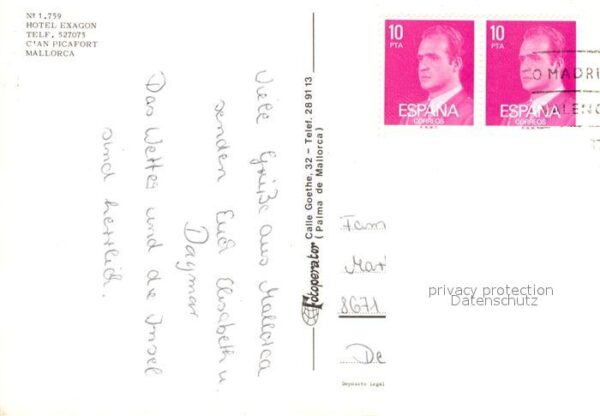 Nº 1,759
HOTEL EXAGON
TELF. 527075
C'AN PICAFORT
MALLORCA
Viele Grüße aus Mallorca
senden Euch Elisabeth u.
Dagmar
Das Wetter und die Insel
sind herrlich.
Fotoperator Calle Goethe, 32 – Telef. 28 91 13
(Palma de Mallorca)
10
PTA
ESPAÑA
CORREOS
10
PTA
ESPAÑA
CORREOS
O MADRI
Fam
Mar
8671
De
Deposito legal
privacy protection
Datenschutz